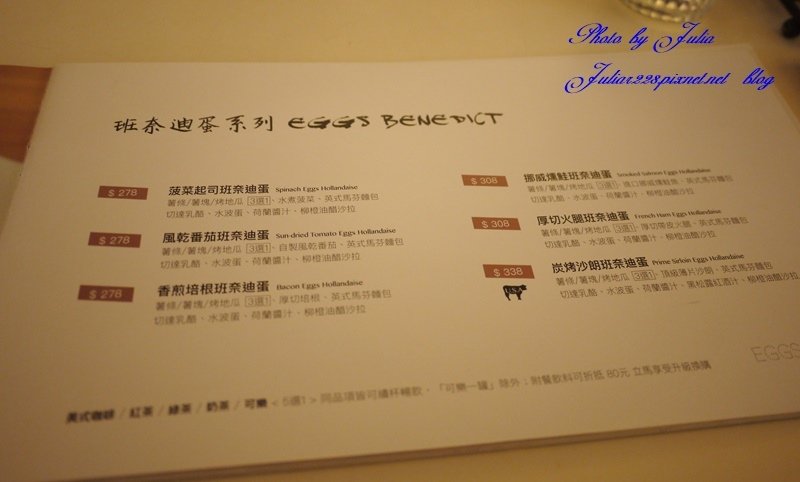 Photo by Julia
Julia1228.pixnet.net blog
班奈迪蛋系列 EGGS BENEDICT
$ 278 菠菜起司班奈迪蛋 Spinach Eggs Hollandaise
薯條/薯塊/烤地瓜 3選1、水煮菠菜、英式馬芬麵包
切達乳酪、水波蛋、荷蘭醬汁、柳橙油醋沙拉
$ 278 風乾番茄班奈迪蛋 Sun-dried Tomato Eggs Hollandaise
薯條/薯塊/烤地瓜 3選1、自製風乾番茄、英式馬芬麵包
切達乳酪、水波蛋、荷蘭醬汁、柳橙油醋沙拉
$ 278 香煎培根班奈迪蛋 Bacon Eggs Hollandaise
薯條/薯塊/烤地瓜 3選1、厚切培根、英式馬芬麵包
切達乳酪、水波蛋、荷蘭醬汁、柳橙油醋沙拉
$ 308 挪威燻鮭班奈迪蛋 Smoked Salmon Eggs Hollandaise
薯條/薯塊/烤地瓜 3選1、進口挪威燻鮭魚、英式馬芬麵包
切達乳酪、水波蛋、荷蘭醬汁、柳橙油醋沙拉
$ 308 厚切火腿班奈迪蛋 French Ham Eggs Hollandaise
薯條/薯塊/烤地瓜 3選1、厚切帶皮火腿、英式馬芬麵包
切達乳酪、水波蛋、荷蘭醬汁、柳橙油醋沙拉
$ 338 炭烤沙朗班奈迪蛋 Prime Sirloin Eggs Hollandaise
薯條/薯塊/烤地瓜 3選1、頂級薄片沙朗、英式馬芬麵包
切達乳酪、水波蛋、荷蘭醬汁、黑松露紅酒汁、柳橙油醋沙拉
EGGS
美式咖啡 / 紅茶 / 綠茶 / 奶茶 / 可樂 < 5選1 > 同品項皆可續杯暢飲,「可樂一罐」除外;附餐飲料可折抵 80元 立馬享受升級換購